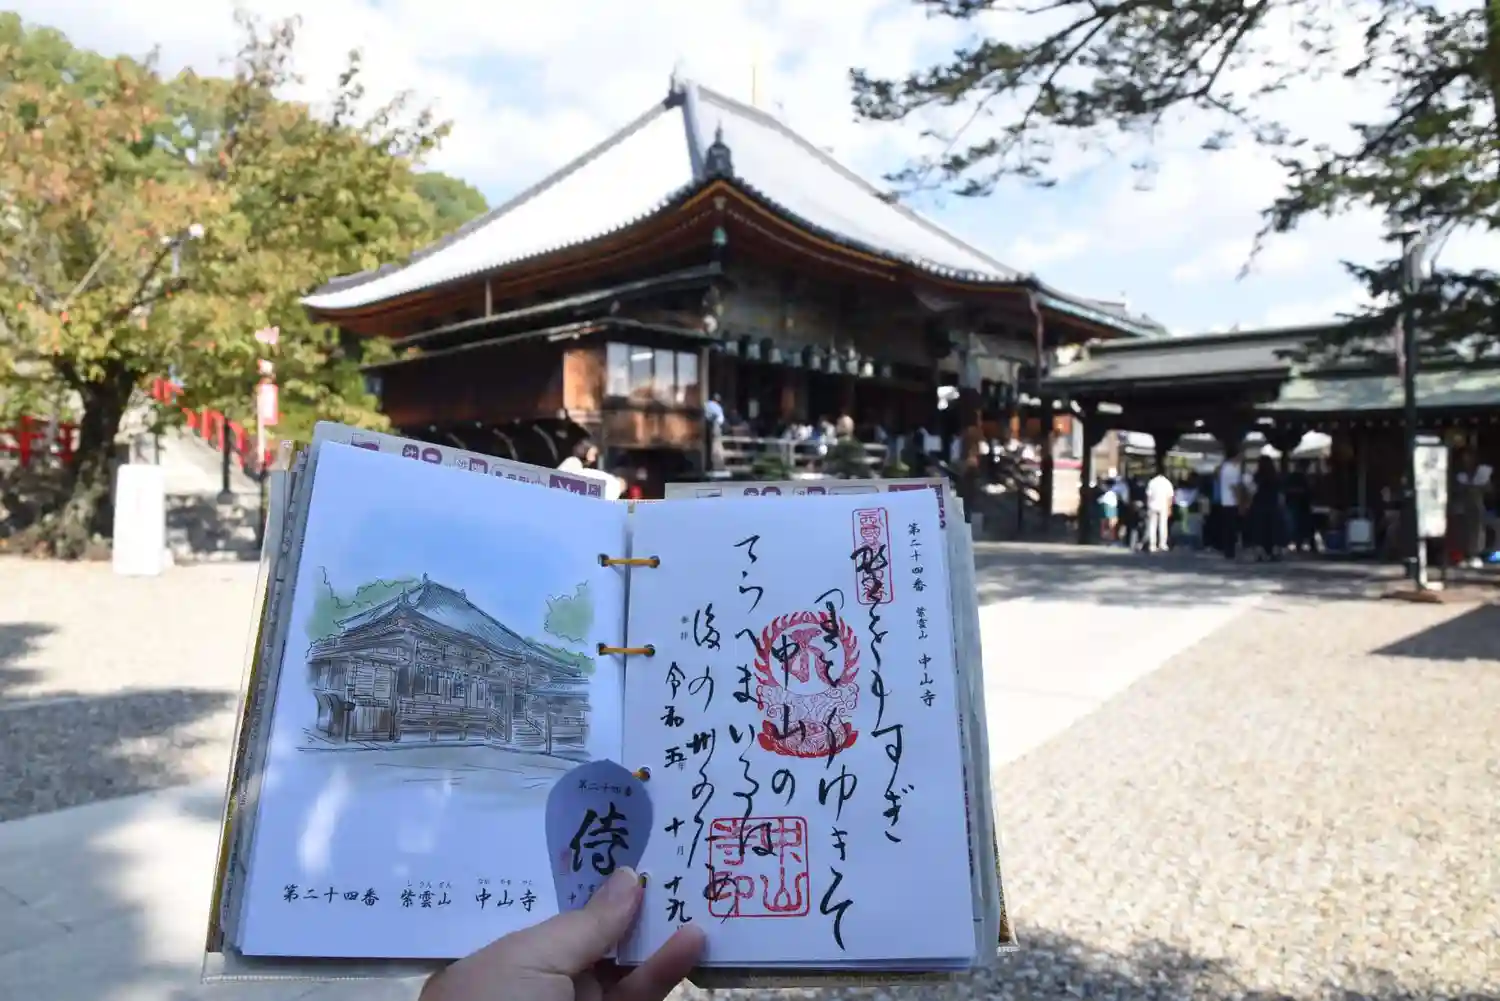 第二十四番 紫雲山 中山寺
野をもすぎ
里をもゆきて
中山の
てらへまいるは
後の世のため
奉拝 令和五年十月十九日
中山寺印
第二十四番
侍
しうんざん なかやまでら
第二十四番 紫雲山 中山寺